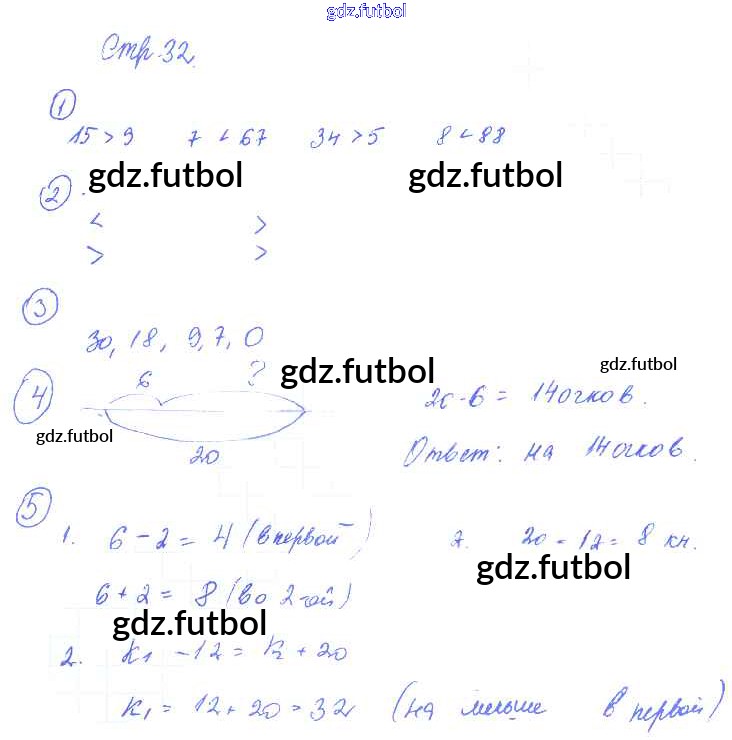 gdz.futbol
Стр.32.
1
15 > 9 7 < 67 34 > 5 8 < 88
gdz.futbol gdz.futbol
2
< >
> >
3
30, 18, 9, 7, 0
gdz.futbol gdz.futbol
4 6 ? 20-6 = 14 очков.
gdz.futbol
20 Ответ: на 14 очков.
5
1. 6 - 2 = 4 (в первой) 20 - 12 = 8 кн.
gdz.futbol
6 + 2 = 8 (во 2-ой)
gdz.futbol
2. К1 - 12 = + 20
К1 = 12 + 20 = 32 (на меньше в первой)